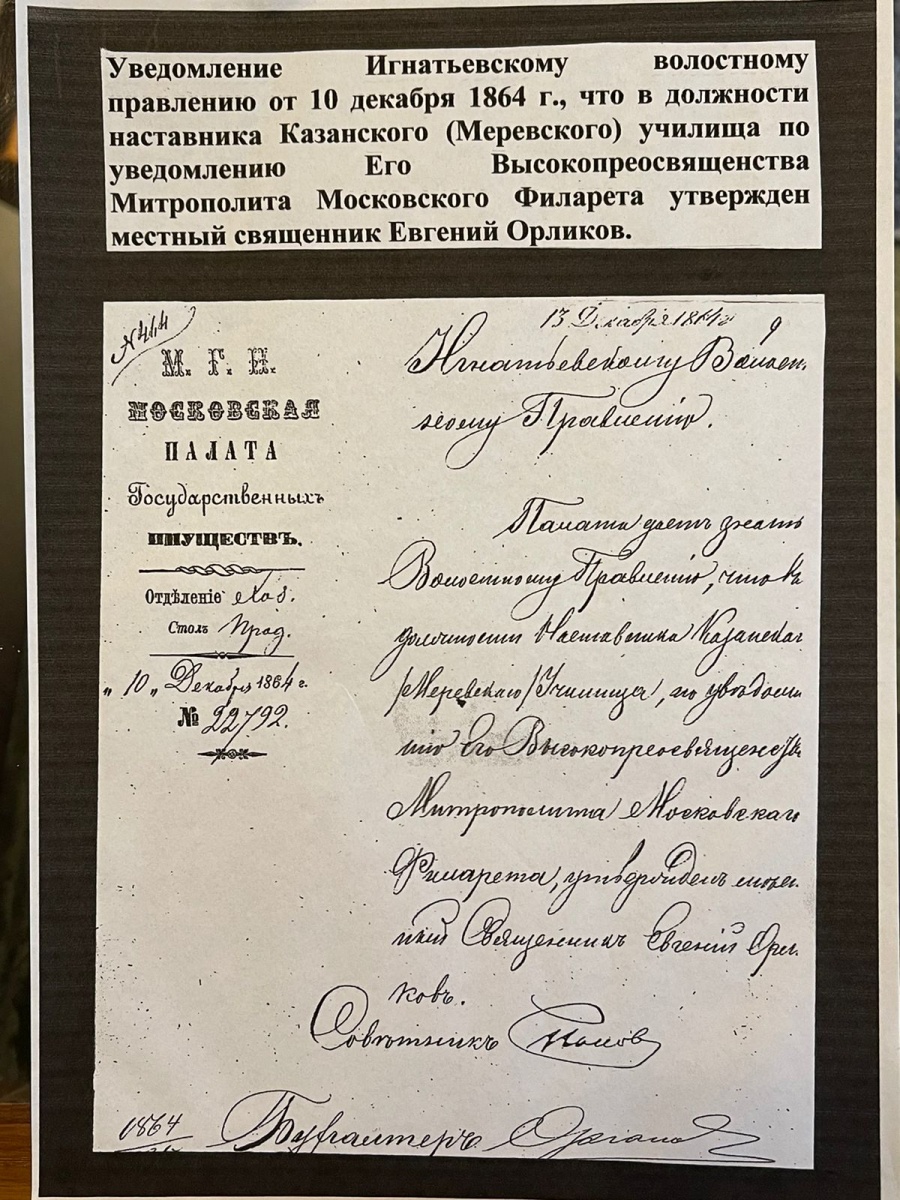 Уведомление Игнатьевскому волостному
правлению от 10 декабря 1864 г., что в должности
наставника Казанского (Меревского) училища по
уведомлению Его Высокопреосвященства
Митрополита Московского Филарета утвержден
местный священник Евгений Орликов.
13 Декабря 1864 г
№ 444
М. Г. И.
МОСКОВСКАЯ
ПАЛАТА
Государственныхъ
ИМУЩЕСТВЪ.
Отдѣленіе Хоз.
Столъ
„ 10 „ Декабря 1864 г.
№ 22792.
Игнатьевскому Волост
ному Правленію.
Палата даетъ знать
Волостному Правленію, что въ
должности Наставника Казанскаго
/Меревскаго/ Училища, по увѣдомле
нію Его Высокопреосвященства
Митрополита Московскаго
Филарета, утвержденъ мѣст
ный Священникъ Евгеній Орли
ковъ.
Совѣтникъ
1864
Бухгалтеръ